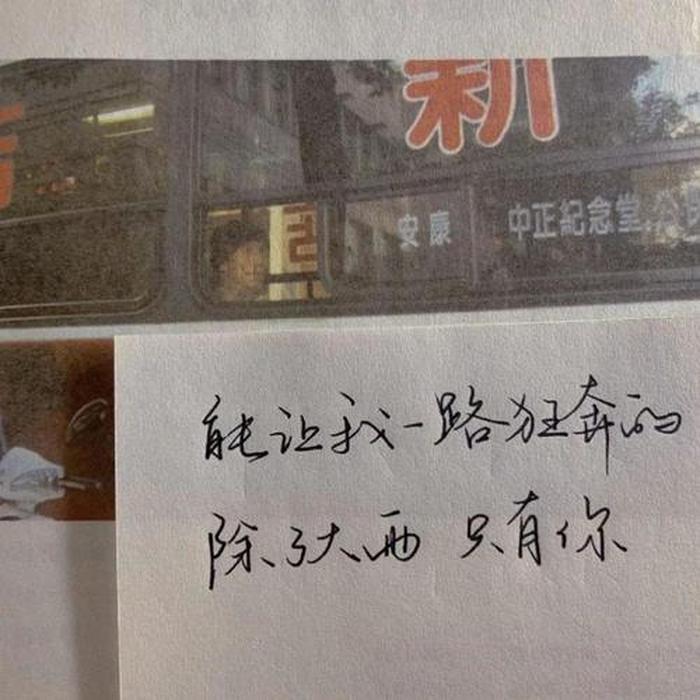 新
安康 中正紀念堂.公
能让我一路狂奔的
除了大雨 只有你